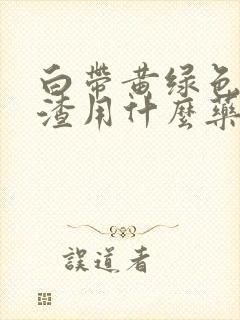 白帶黃绿色
渣用什麼藥
誤道者